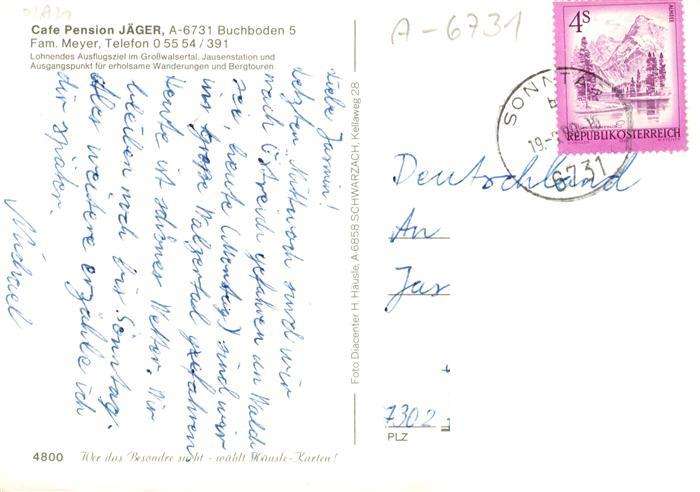 Cafe Pension JÄGER, A-6731 Buchboden 5
Fam. Meyer, Telefon 0 55 54 / 391
Lohnendes Ausflugsziel im Großwalsertal, Jausenstation und
Ausgangspunkt für erholsame Wanderungen und Bergtouren
Liebe Jasmin!
Letzten Mittwoch sind wir
nach Östreich gefahren an Wald
see, heute (Montag) sind wir
ins große Walzertal gefahren
Heute ist schönes Wetter. Wir
bleiben noch bis Sonntag.
Alles weitere erzähle ich
dir später.
Michael
4800 Wer das Besondre sucht - wählt Häusle-Karten!
Foto: Diacenter H. Häusle, A-6858 SCHWARZACH, Kellaweg 28
A-6731
4S
ALMSEE
REPUBLIK ÖSTERREICH
SONNTA
19-
6731
Deutschland
An
Jas
7302
PLZ